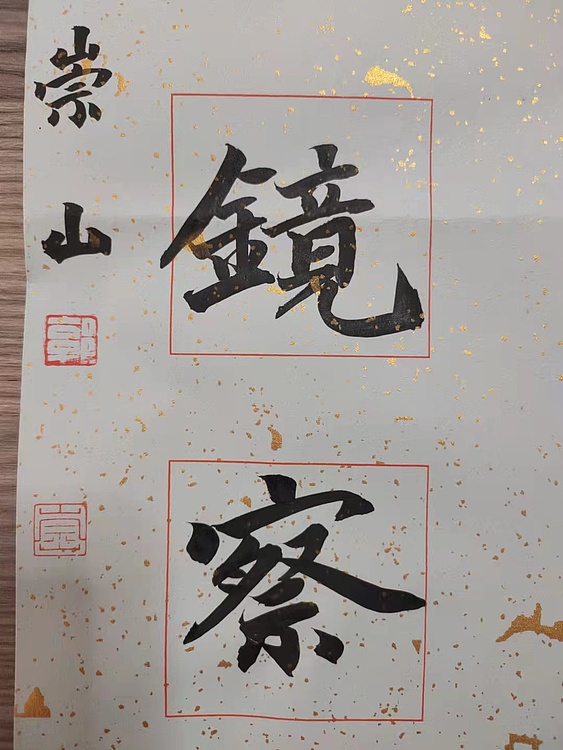 鏡察
崇山